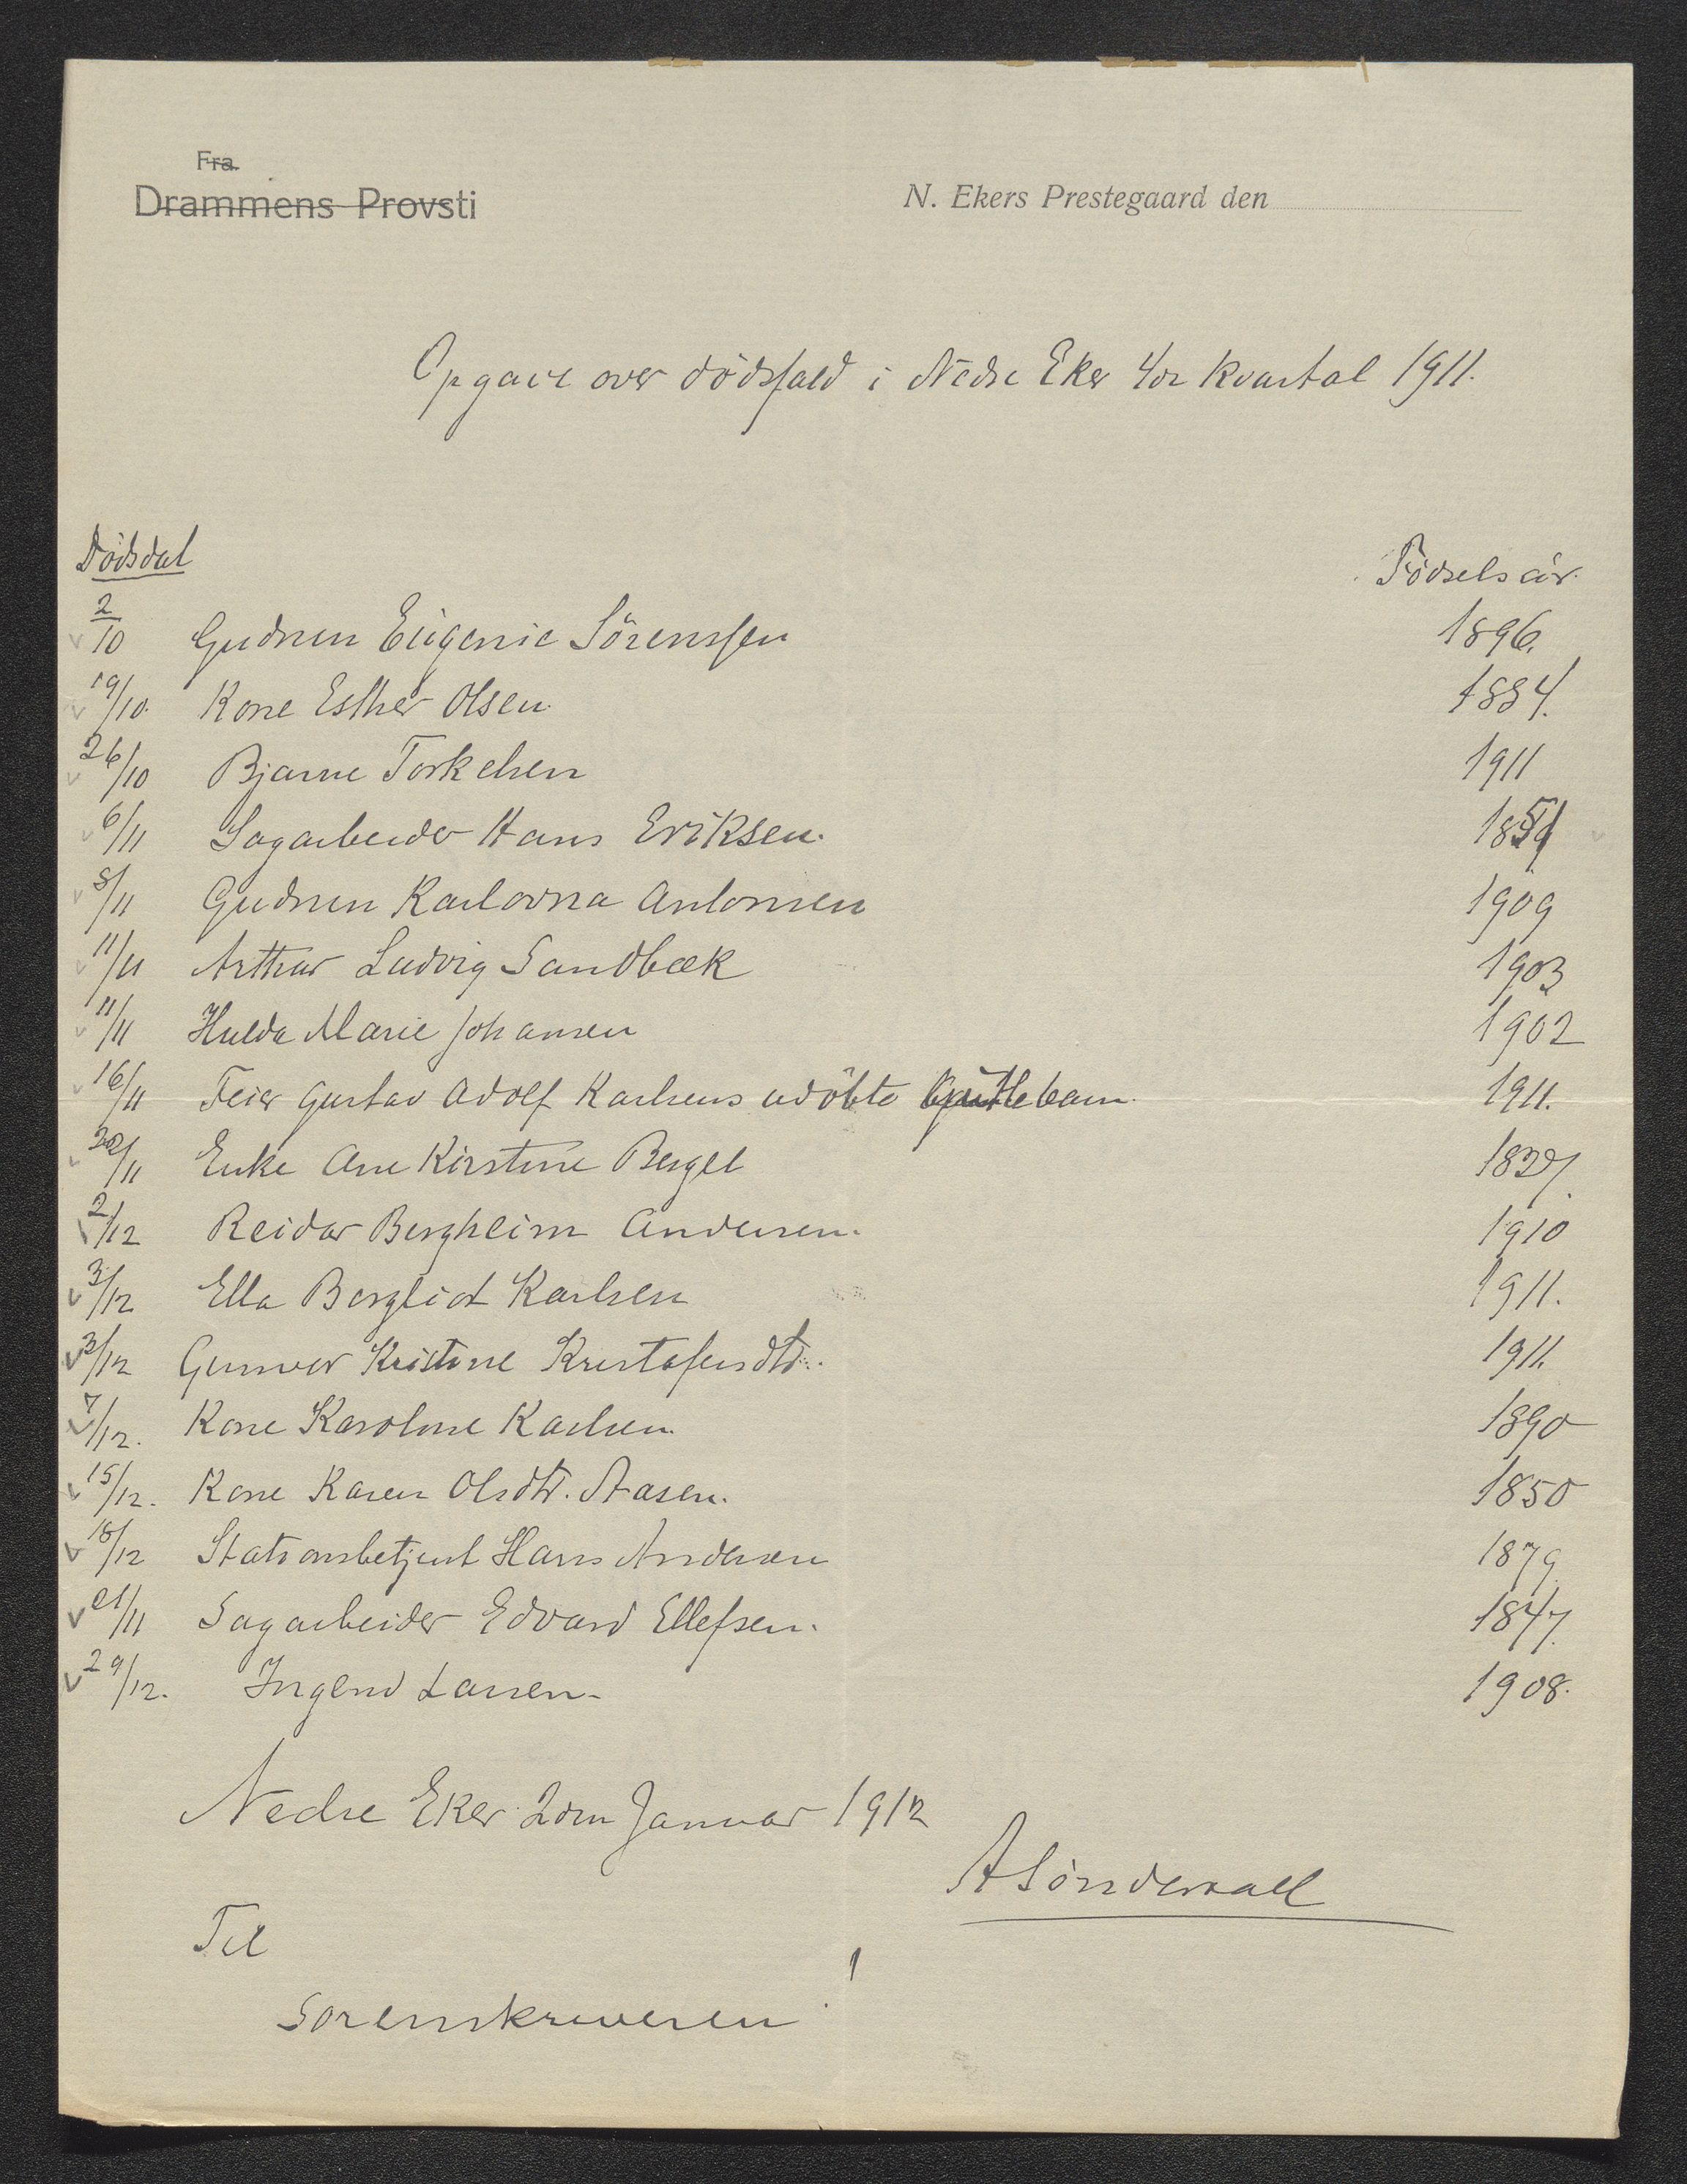 Fra
Drammens Provsti
N. Ekers Prestegaard den
Opgave over dödsfald i Nedre Eker 4de kvartal 1911.
Dödsdat Födselsår.
2/10 Gudrun Eugenie Sörenssen 1896.
19/10. Kone Esther Olsen. 1884.
26/10 Bjarne Torkelsen 1911
6/11 Sagarbeider Hans Eriksen.
8/11 Gudrun Karlovna Antonsen 1909
11/11 Arthur Ludvig Sandbæk 1903
11/11 Hulda Marie Johansen 1902
16/11 Feier Gustav Adolf Karlsens udöbte barn. 1911.
Enke Ane Kirstine Berget
2/12 Reidar Bergheim Andersen. 1910
3/12 Ella Bergliot Karlsen 1911.
3/12 Gunvor Kristine Kristofersdtr. 1911.
7/12. Kone Karoline Karlsen. 1890
15/12. Kone Karen Olsdtr. Aasen. 1850
18/12 Stationsbetjent Hans Andersen 1879
21/11 Sagarbeider Edvard Ellefsen. 1847.
29/12. Ingerid Larsen. 1908.
Nedre Eker 2den Januar 1912
A Söndervall
Til
Sorenskriveren